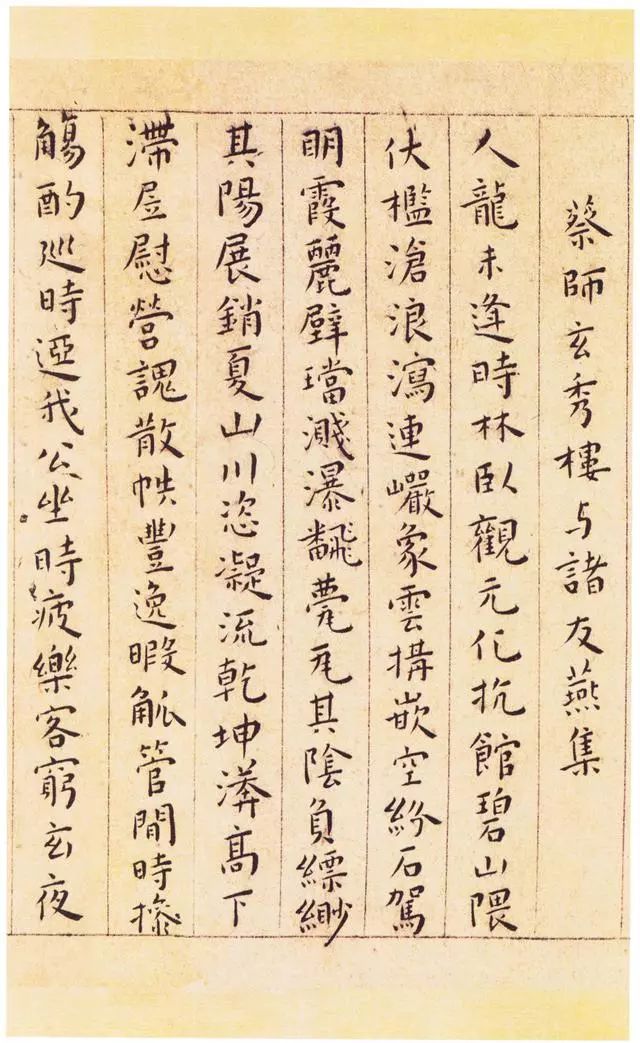 蔡師玄秀樓与諸友燕集
人龍未逢時林臥觀元化抗館碧山隈
伏檻滄浪瀉連巗象雲搆嵌空紛石駕
明霞麗壁璫濺瀑飜甍瓦其陰負縹緲
其陽展銷夏山川恣凝流乾坤漭高下
滯慰營散帙豐逸暇觚管間時操
觴酌巡時我公坐時疲樂客窮玄夜